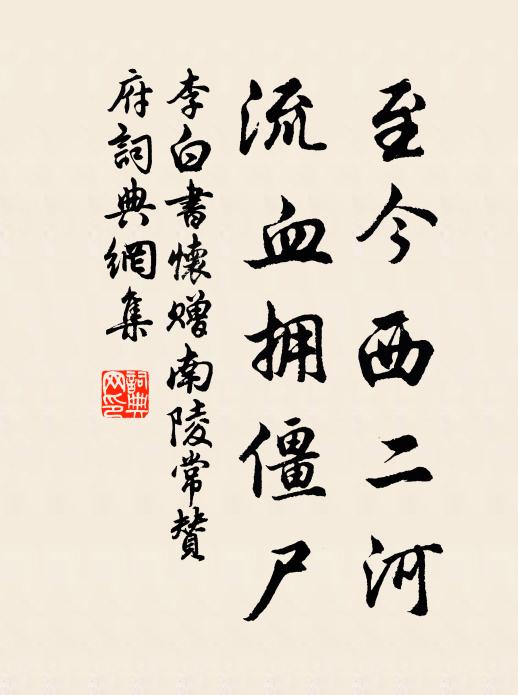 至今西二河
流血拥僵尸
李白書懷赠南陵常贊
府詞典網集
詞典
网印